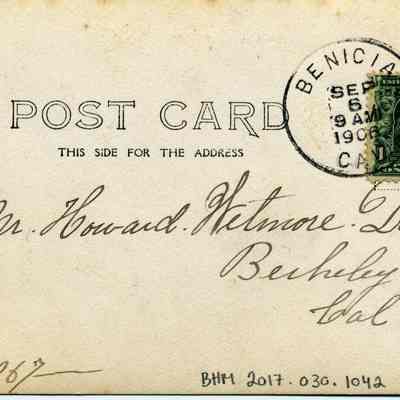 BENICIA
SEP
6
9 AM
1906
CA
POST CARD
THIS SIDE FOR THE ADDRESS
Mr. Howard. Wetmore.
Berkeley
Cal
BHM 2017.030.1042